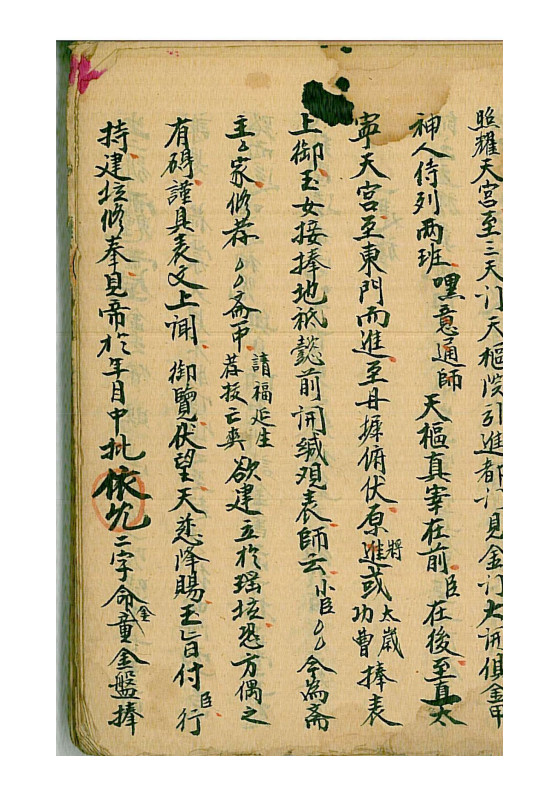 照耀天宮至三天门天樞院引進都门見金门大開俱金甲
神人侍列兩班 嘿意通師 天樞真宰在前臣在後至真太
寧天宮至東門而進至丹墀俯伏原進將或太歲功曹捧表
上御玉女接捧地祇懿前開緘观表師云小臣〻〻今為斋
主〻家修荐〻〻斋中請福延生荐拔亡灵欲建立於瑶坛恐方偶之
有碍謹具表文上诵 御覽伏望天慈降賜玉旨付臣行
持建坛修奉見帝於年月中批依允二字命金童金盤捧